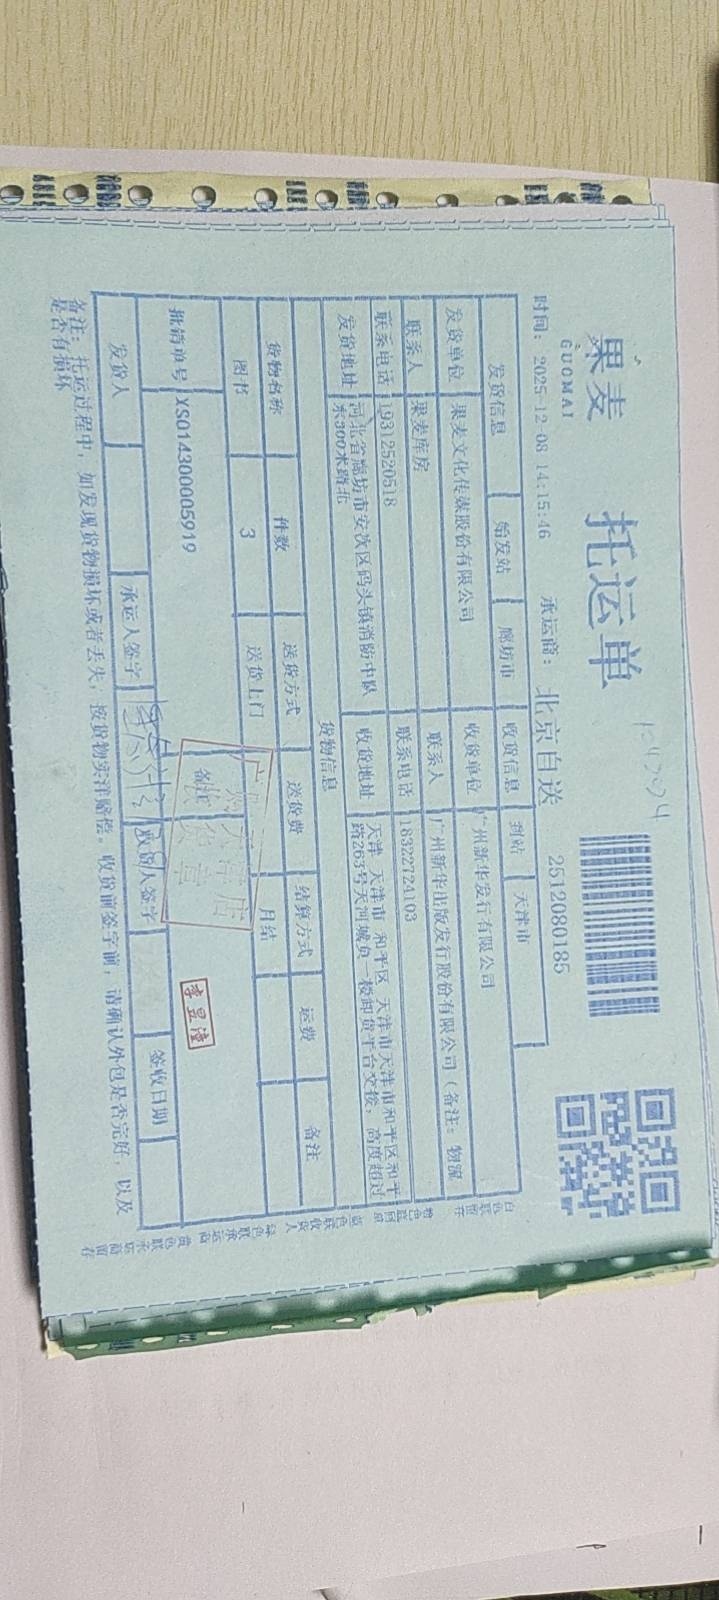 果麦
GUOMAI
托运单
时间: 2025-12-08 14:15:46
承运商: 北京自送
2512080185
发货信息 始发站 廊坊市 收货信息 到站 天津市
发货单位 果麦文化传媒股份有限公司 收货单位 广州新华发行有限公司
联系人 果麦库房 联系人 广州新华出版发行股份有限公司(备注: 物流
联系电话 19312520518 联系电话 18322724103
发货地址 河北省廊坊市安次区码头镇消防中队
东300米路北
收货地址 天津 天津市 和平区 天津市天津市和平区和平
路263号天河城负一楼卸货平台交接,高度超过
货物信息
货物名称 件数 送货方式 送货费 结算方式 运费 备注
图书 3 送货上门 月结
批销单号 XS014300005919 备注
收货章
李昱潼
发货人 承运人签字 收货人签字 签收日期
备注: 托运过程中, 如发现货物损坏或者丢失, 按货物实洋赔偿。收货前签字前, 请确认外包是否完好, 以及
是否有损坏